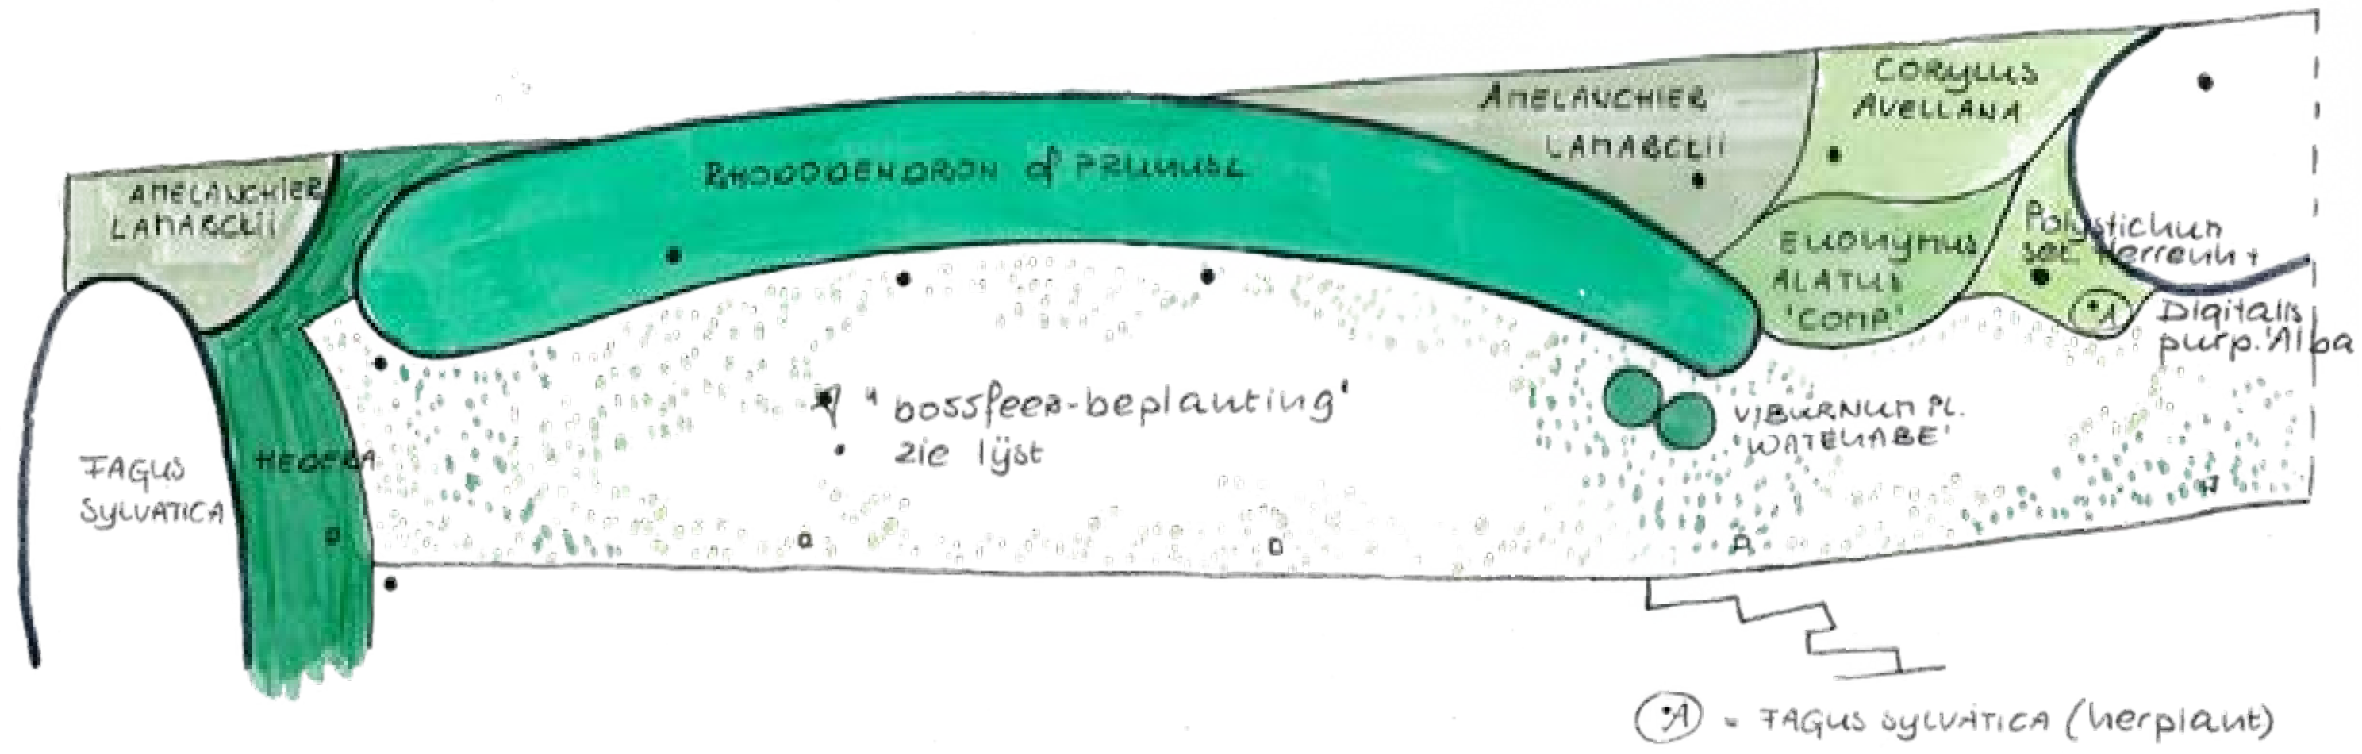 AMELANCHIER
LAMARCKII
RHODODENDRON of PRUNUSL
AMELANCHIER
LAMARCKII
CORYLUS
AVELLANA
EUONYMUS
ALATUS
'COMP.'
Polystichum
set. Herrenh +
Digitalis
purp. 'Alba
A
FAGUS
SYLVATICA
HEDERA
" bossfeer-beplanting'
zie lijst
VIBURNUM PL.
'WATENABE'
A = FAGUS SYLVATICA (herplant)